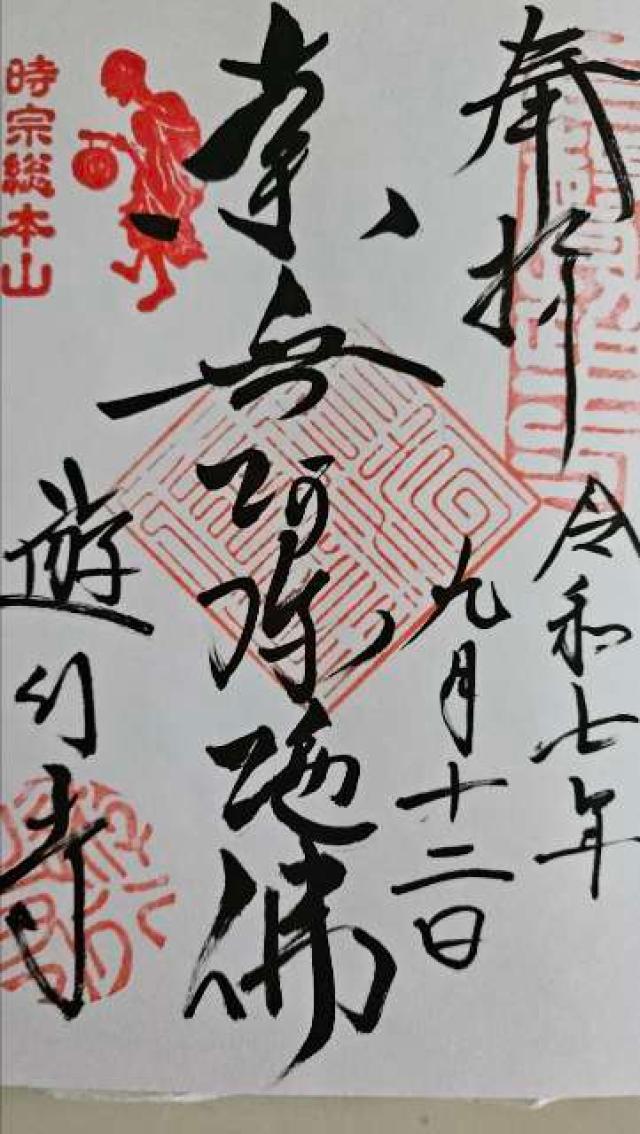 奉拝
令和七年
九月十二日
南無阿弥陀佛
時宗総本山
遊行寺